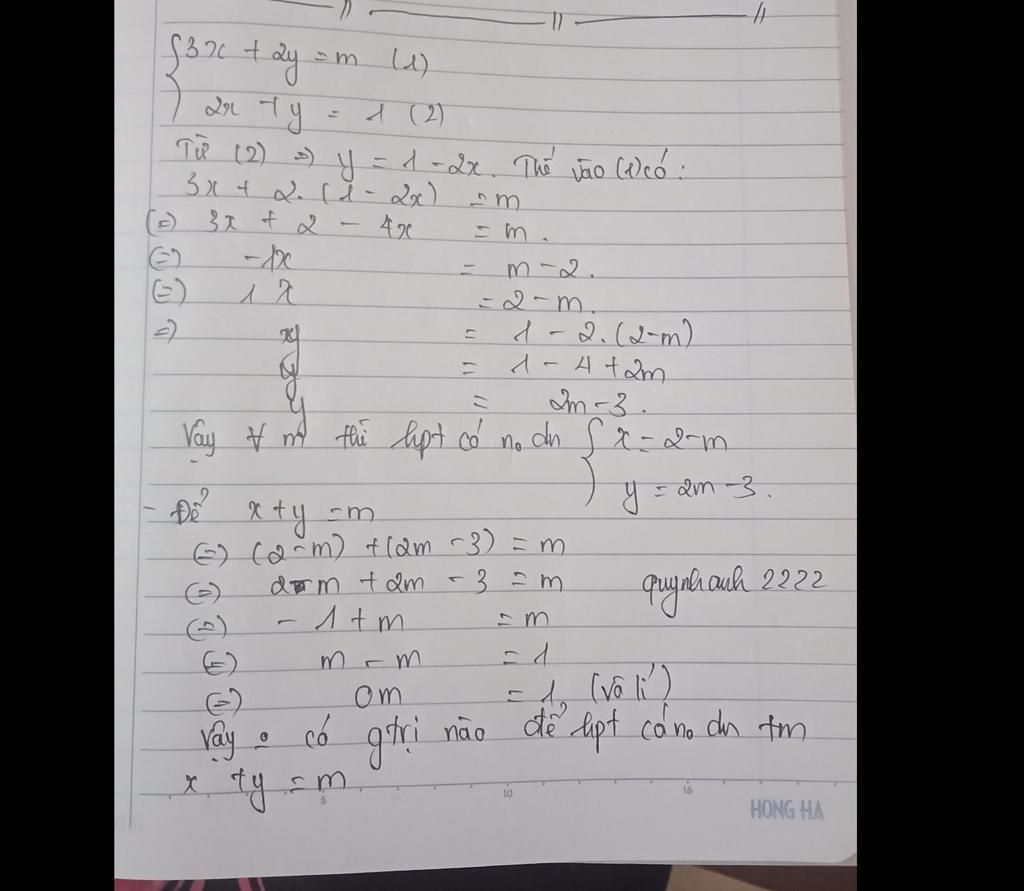 {3x + 2y = m (1)
2x + y = 1 (2)
Từ (2) => y = 1 - 2x. Thế vào (1) có:
3x + 2. (1 - 2x) = m
(=) 3x + 2 - 4x = m.
(=) -1x = m - 2.
(=) 1x = 2 - m.
=) y = 1 - 2. (2-m)
y = 1 - 4 + 2m
y = 2m - 3.
Vậy ∀ m thì hpt có no dn { x = 2-m
y = 2m - 3.
- Để x + y = m
(=) (2-m) + (2m - 3) = m
(=) 2 - m + 2m - 3 = m quynhanh 2222
(=) - 1 + m = m
(=) m - m = 1
(=) 0m = 1 (vô lí)
Vậy o có gtrị nào để hpt có no dn tm
x + y = m
5 10 15
HONG HA